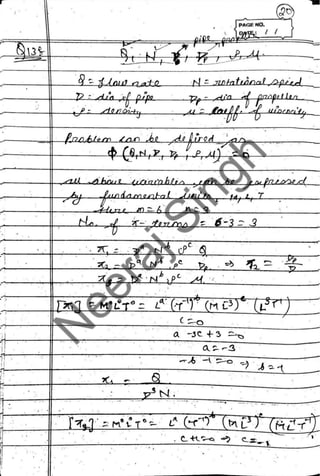 20
PAGE NO.
DATE: / /
pipe propeller
Q13:
Q, N, D, Dp, ρ, μ.
Q = flow rate N = rotational speed
D = dia of pipe Dp = dia of propeller
ρ = density μ = coeff. of viscosity
Problem can be defined as
ϕ (Q, N, D, Dp, ρ, μ) = 0
all above variables can be expressed
by fundamental units M, L, T
here m = 6
No. of π-terms = 6-3 = 3
π₁ = Dᵃ Nᵇ ρᶜ Q
π₂ = Dᵃ Nᵇ ρᶜ Dp ⇒ π₂ = Dp/D
π₃ = Dᵃ Nᵇ ρᶜ μ
[π₁] = M⁰L⁰T⁰ = Lᵃ (T⁻¹)ᵇ (ML⁻³)ᶜ (L³T⁻¹)
c = 0
a - 3c + 3 = 0
a = -3
-b - 1 = 0 ⇒ b = -1
π₁ = Q/D³N.
[π₃] = M⁰L⁰T⁰ = Lᵃ (T⁻¹)ᵇ (ML⁻³)ᶜ (ML⁻¹T⁻¹)
c+1=0 ⇒ c=-1
Neeraj Singh